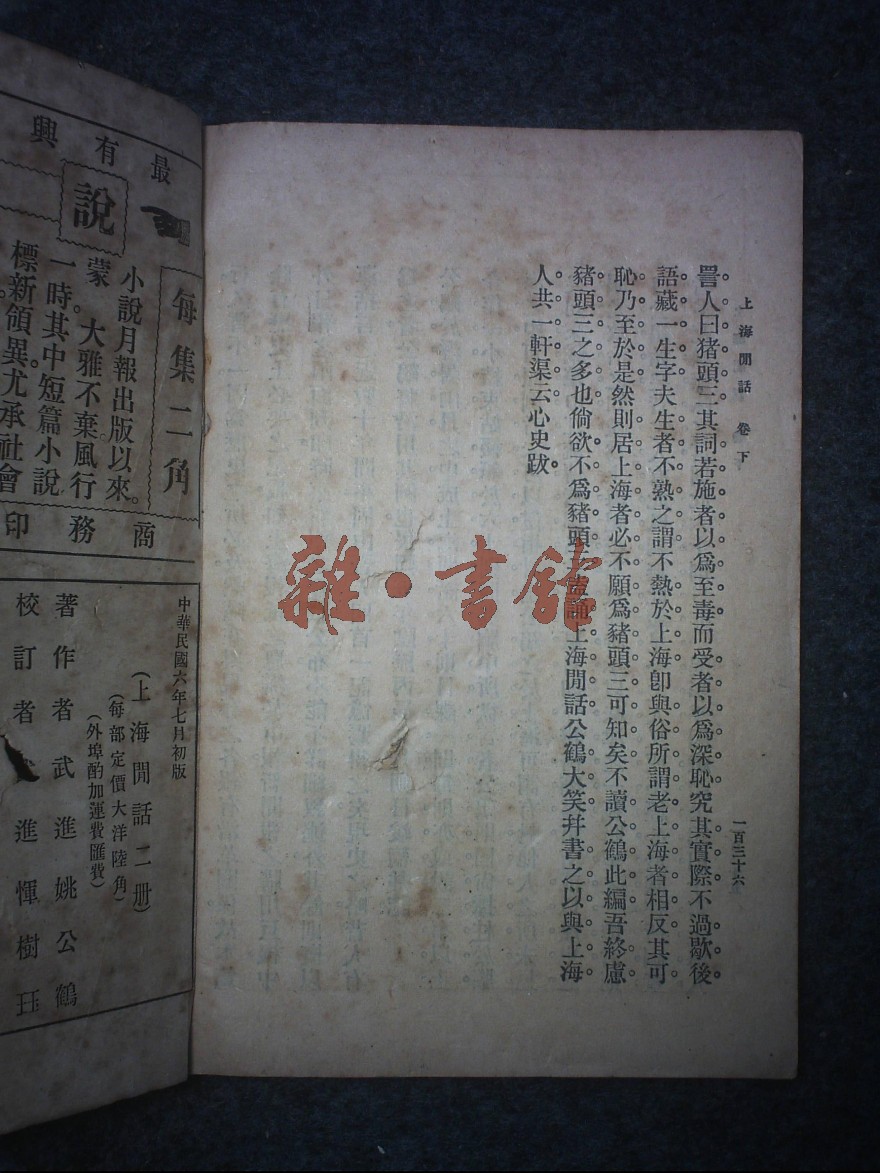 上海閒話 卷下 一百三十六
詈人曰猪頭三其詞若施者以爲至毒而受者以爲深恥究其實際不過歇後
語藏一生字夫生者不熟之謂不熱於上海卽與俗所謂老上海者相反其可
恥乃至於是然則居上海者必不願爲豬頭三可知矣不讀公鶴此編吾終慮
豬頭三之多也倘欲不爲豬頭三盍誦上海閒話公鶴大笑幷書之以與上海
人共一軒渠云心史跋
雜·書館
最有興
說
每集二角
小說月報出版以來。
蒙大雅不棄風行
一時。其中短篇小說
標新領異。尤承社會
商務印
中華民國六年七月初版
(上海閒話二册)
(每部定價大洋陸角)
(外埠酌加運費匯費)
著作者武進姚公鶴
校訂者 進惲樹珏